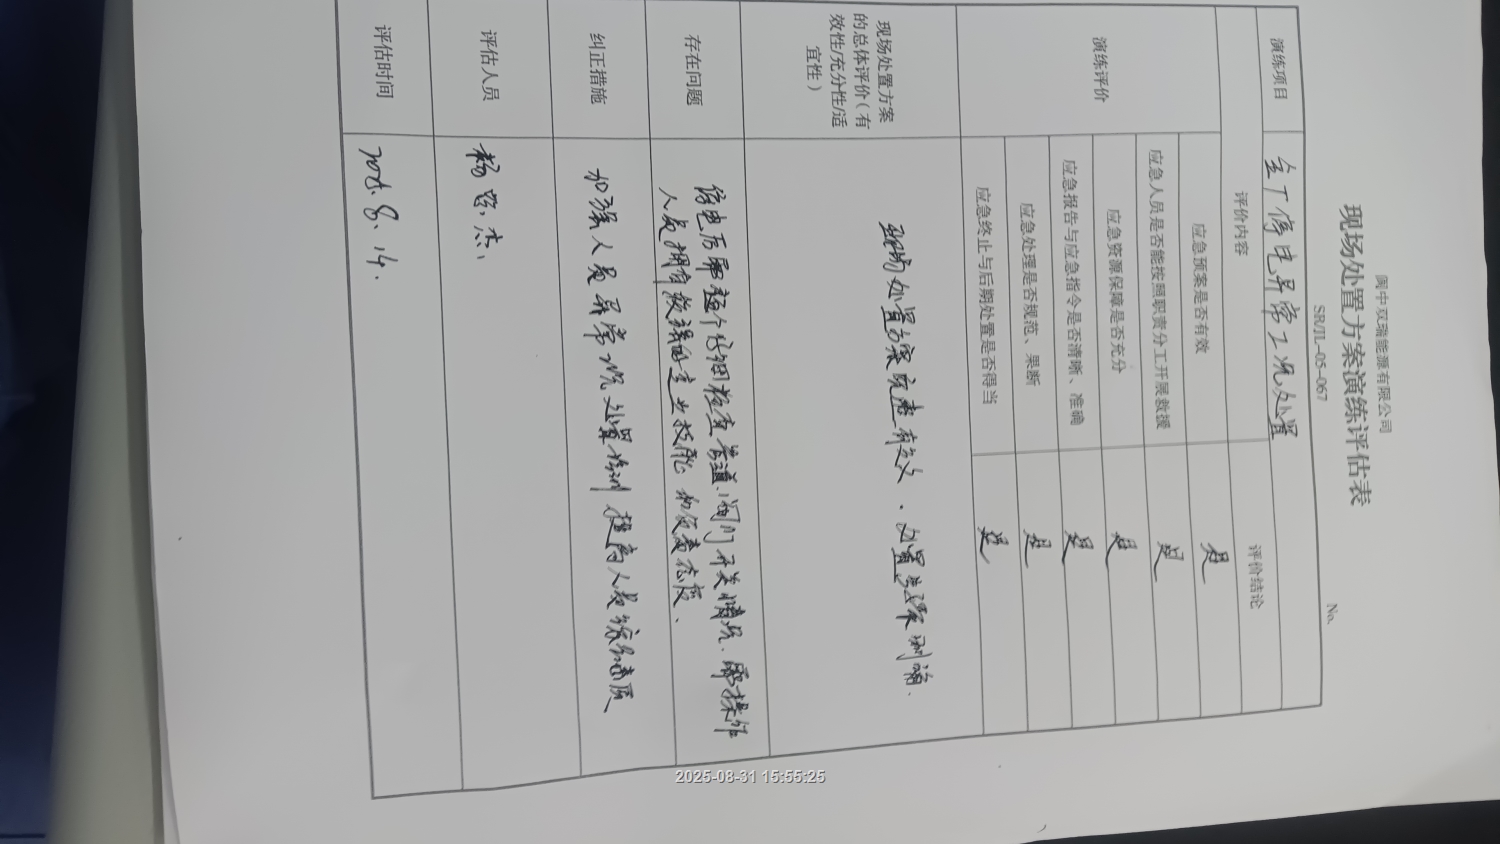 阆中双瑞能源有限公司
现场处置方案演练评估表
SR/JL-05-067
No.
演练项目 全厂停电异常工况处置
评价内容 评价结论
演练评价
应急预案是否有效 是
应急人员是否能按照职责分工开展救援 是
应急资源保障是否充分 是
应急报告与应急指令是否清晰、准确 是
应急处理是否规范、果断 是
应急终止与后期处置是否得当 是
现场处置方案
的总体评价（有
效性/充分性/适
宜性）
现场处置方案完整有效，处置步骤明确。
存在问题
停电后需逐个仔细检查管道、阀门开关情况，需操作
人员拥有较强的专业技能和
纠正措施
加强人员异常情况处置培训 提高人员综合素质
评估人员 杨
评估时间 8.14.
2025-08-31 15:55:25